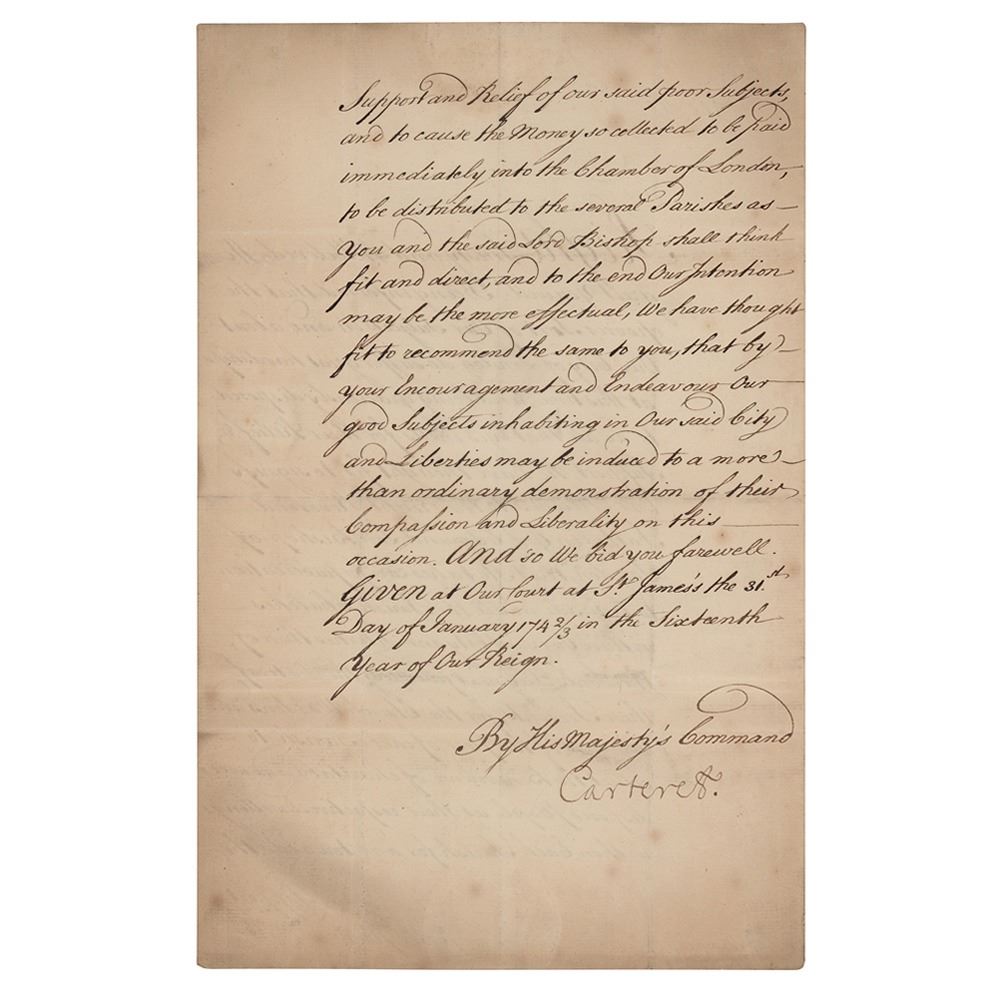 Support and Relief of our said poor Subjects,
and to cause the Money so collected to be paid
immediately into the Chamber of London,
to be distributed to the several Parishes as
You and the said Lord Bishop shall think
fit and direct, and to the end Our Intention
may be the more effectual, We have thought
fit to recommend the same to you, that by
your Encouragement and Endeavour Our
good Subjects inhabiting in Our said City
and Liberties may be induced to a more
than ordinary demonstration of their
Compassion and Liberality on this
occasion. And so We bid you farewell.
Given at Our Court at St. James's the 31.st
Day of January 174 2/3 in the Sixteenth
Year of Our Reign.
By His Majesty's Command
Carteret.